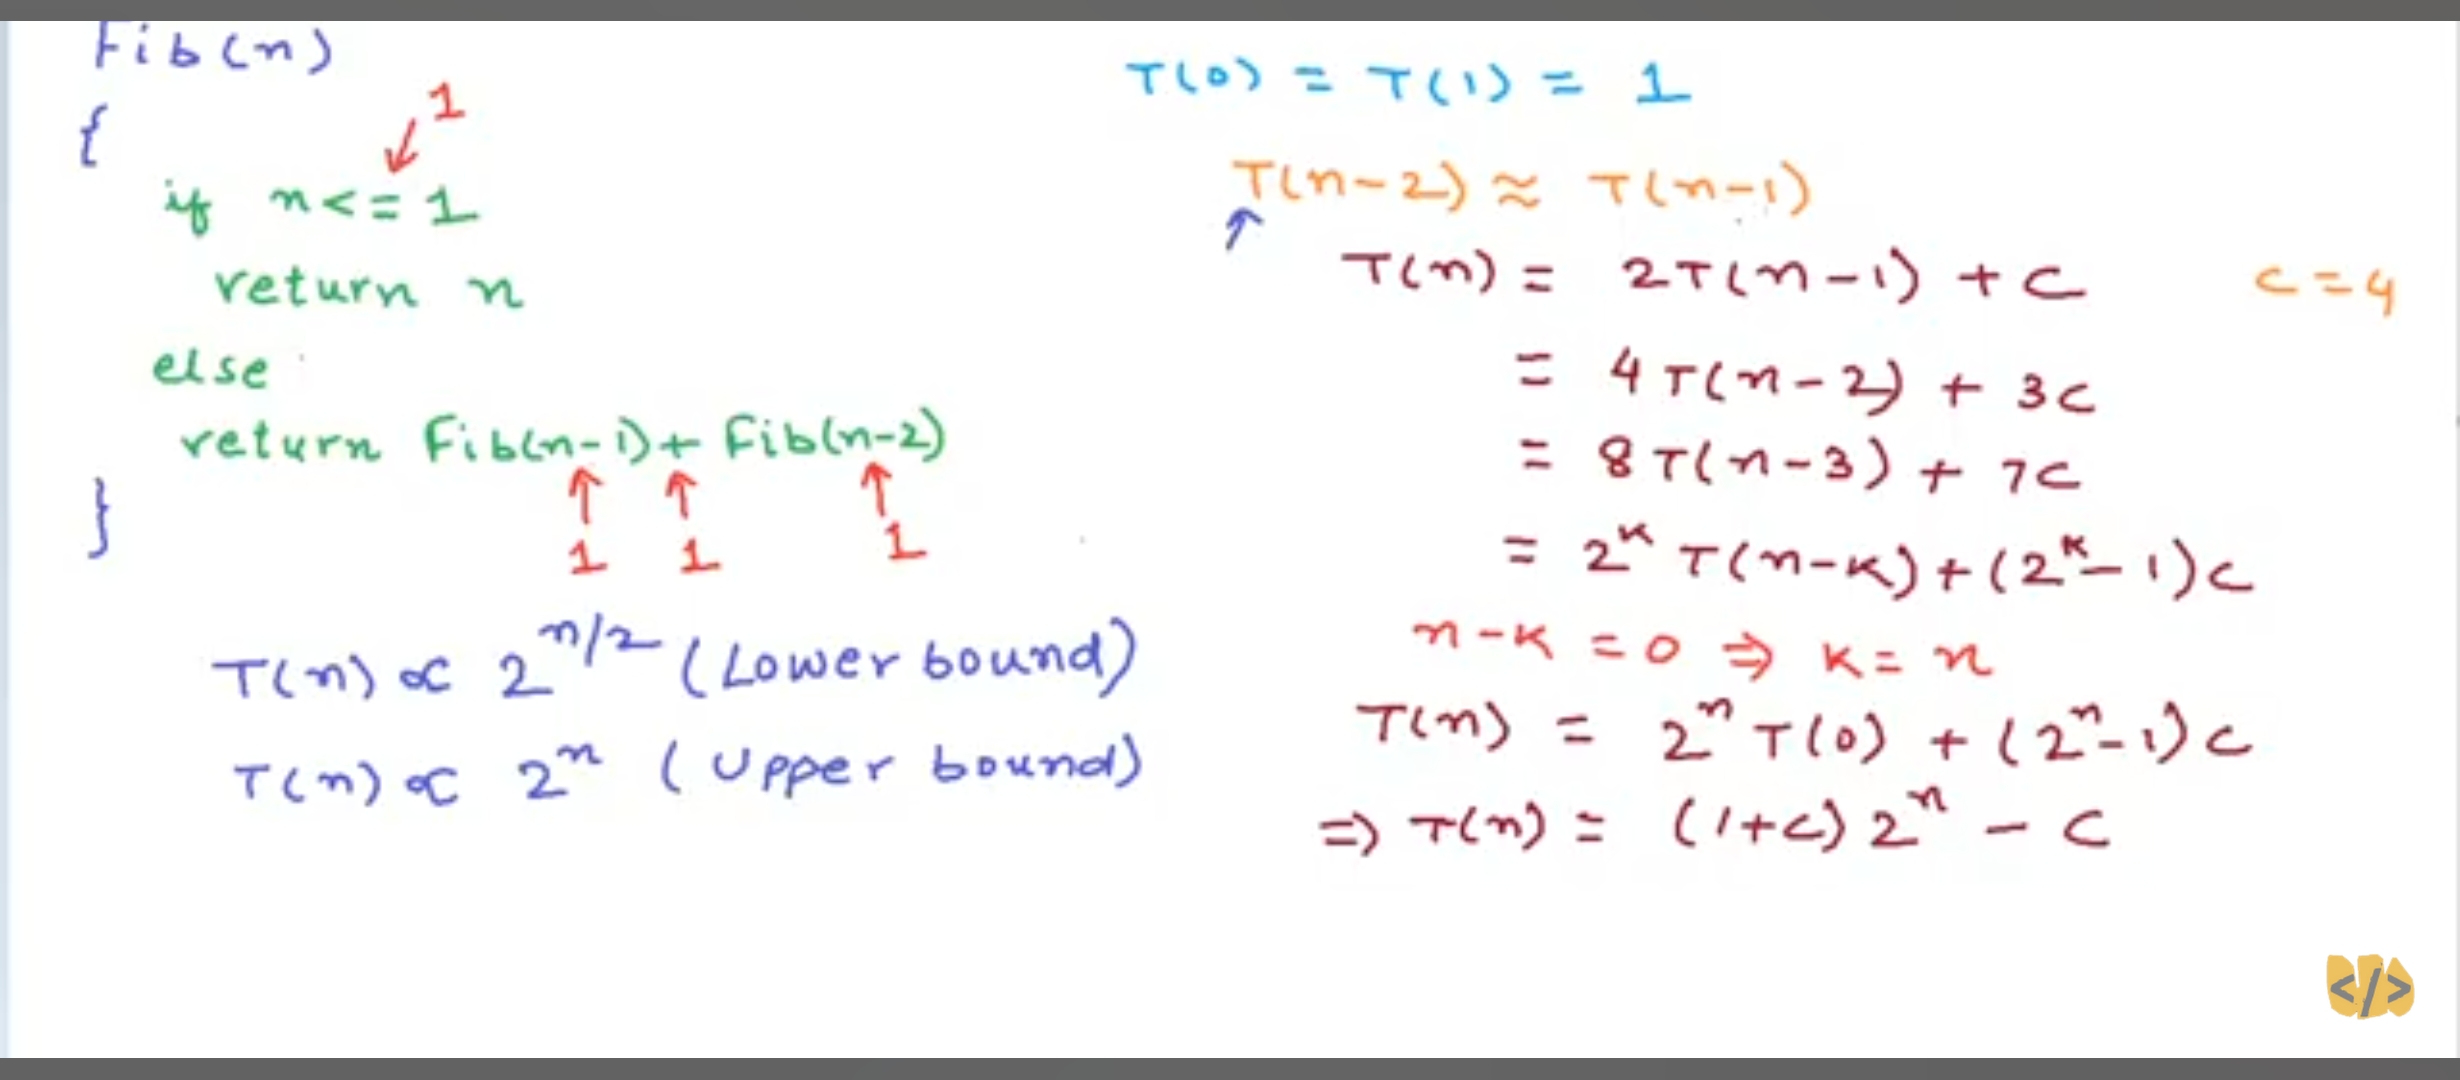 Fib(n)
{
1
if n<=1
return n
else
return Fib(n-1)+ Fib(n-2)
1 1 1
}
T(n) ∝ 2^n/2 (Lower bound)
T(n) ∝ 2^n (Upper bound)
T(0) = T(1) = 1
T(n-2) ≈ T(n-1)
T(n) = 2T(n-1) + C
c=4
= 4T(n-2) + 3C
= 8T(n-3) + 7C
= 2^K T(n-K)+(2^K-1)C
n-K = 0 ⇒ K = n
T(n) = 2^n T(0) + (2^n-1)C
⇒ T(n) = (1+C) 2^n - C
</>